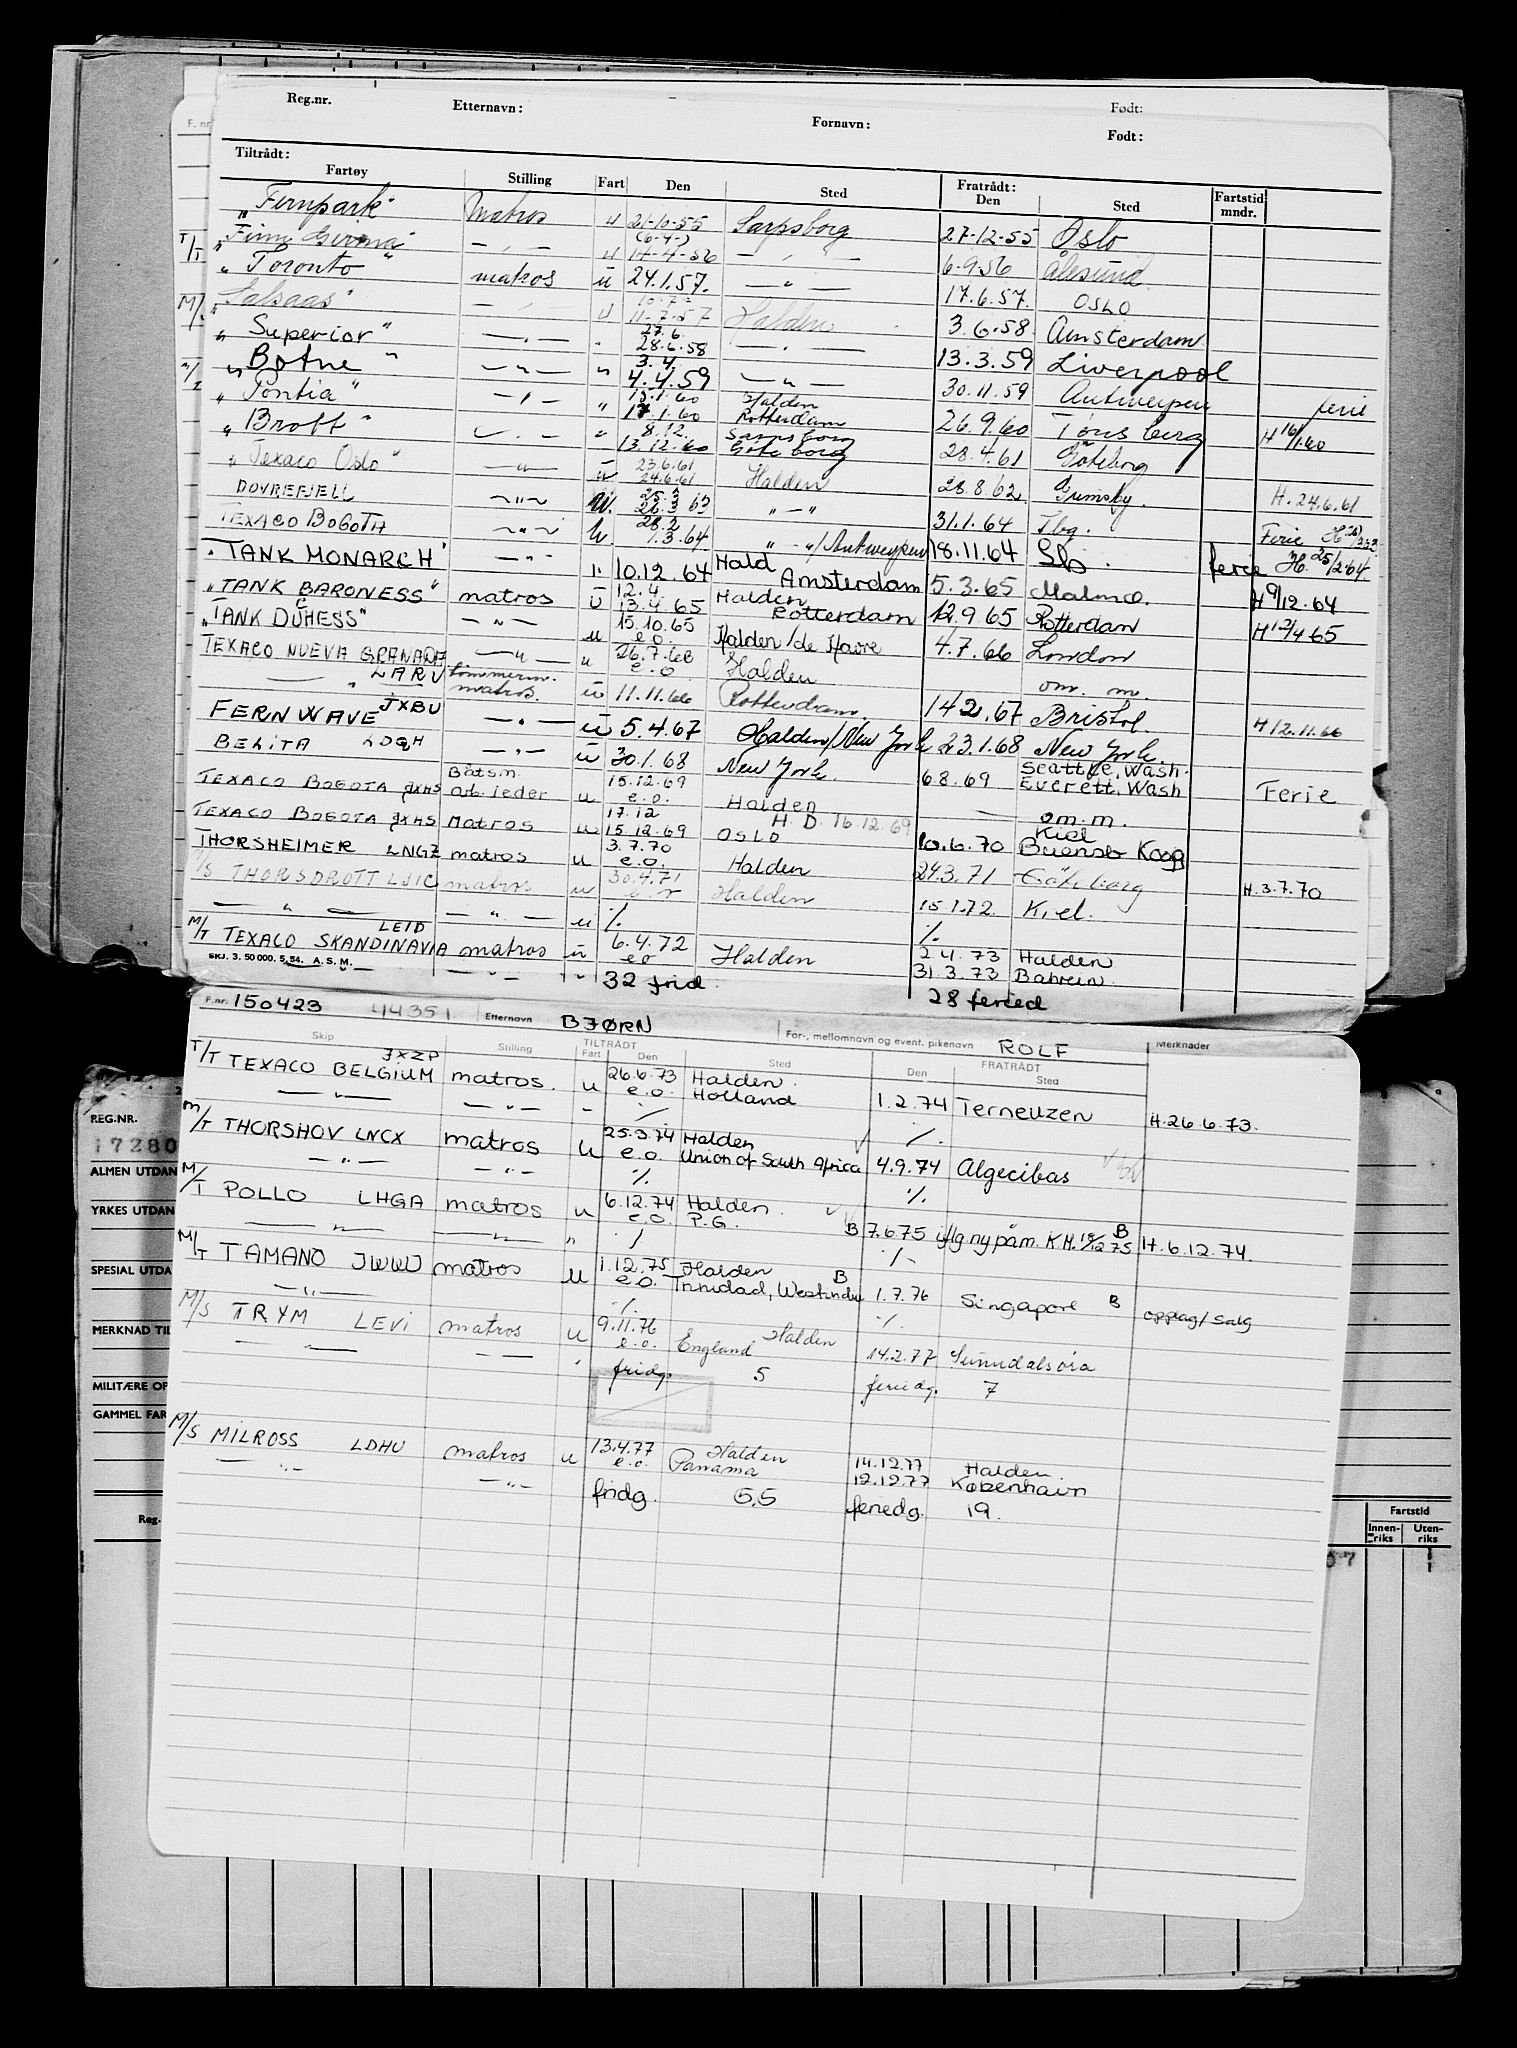 Reg.nr. Etternavn: Fornavn: Født:
Født:
Tiltrådt: Fratrådt:
Fartøy Stilling Fart Den Sted Den Sted Fartstid mndr.
"Fernpark" Matros u 21-10-55 Sarpsborg 27-12-55 Oslo
(6-4-)
T/T " — " — u 14-4-56 — " — 6.9.56 Ålesund
" Toronto " matros u 24.1.57. — " — 17.6.57. OSLO
M/ — " — u 11.7.57 Halden 3.6.58 Amsterdam
27.6.
" Superior " — " — " 28.6.58 — " — 13.3.59 Liverpool
3.4
" Botne " — " — " 4.4.59 — " — 30.11.59 Antwerpen ferie
15.1.60 Halden
" Pontia " — " — " 17.1.60 Rotterdam 26.9.60 Tønsberg H 16/1.60
8.12. Sarpsborg
" Brott " — " — " 13.12.60 Göteborg 28.4.61 Göteborg
23.6.61
" Texaco Oslo " — " — u 24.6.61 Halden 28.8.62 Grimsby. H. 24.6.61
25.3
DOVREFJELL — " — u. 26.3 63 " - " 31.1.64 Tbg. Ferie
28.2
TEXACO BOGOTA — " — u 1.3.64 " - "/Antwerpen 18.11.64 Sb. ferie H. 25/2.64
" TANK MONARCH " — " — " 10.12.64 Hald Amsterdam 5.3.65 Malmø. H 9/12.64
12.4. Halden
" TANK BARONESS " matros u 13.4 65 Rotterdam 12.9.65 Rotterdam H 12/4 65
15.10.65
" TANK DUCHESS " — " — u e.o. Halden/de Havre 4.7.66 London
TEXACO NUEVA GRANADA — " — u 26.7.66 e.o Halden om. m.
— " — LARV tømmerm. matros. u 11.11.66 Rotterdam. 14.2.67 Bristol H 12.11.66
FERNWAVE JXBU — " — u 5.4.67 Halden/New York 23.1.68 New York.
BELITA LDGH — " — u 30.1.68 New York. 6.8.69 Seattle, Wash. Everett, Wash Ferie
TEXACO BOGOTA JXHS Båtsm. arb. leder u 15.12.69 e.o. Halden — om.m.
17.12 H. D. 16.12.69
TEXACO BOGOTA JXHS Matros u 15.12.69 OSLO 10.6.70 Kiel
THORSHEIMER LNGZ matros u 3.7.70 e.o. Halden 24.3.71 Göteborg H. 3.7.70
T/S THORSDROTT LJIC matros u 30.4.71 Halden 15.1.72. Kiel.
— " — — " — u ./. ./.
M/T TEXACO SKANDINAVIA LEID matros u 6.4.72 e.o Halden 2.4.73 Halden
— " — — " — " 31.3.73 Bahrein.
SKJ. 3. 50 000. 5. 54. A. S. M.
32 frid. 28 feried
F.nr. 150423 44351 Etternavn BJØRN For-, mellomnavn og event. pikenavn ROLF
Skip Stilling TILTRÅDT Fart Den Sted FRATRÅDT Den Sted Merknader
T/T TEXACO BELGIUM JXZP matros. u 26.6.73 Halden.
e.o. Holland 1.2.74 Terneuzen H. 26.6.73.
— " — — " — - ./. ./.
M/T THORSHOV LNCX matros u 25.3.74 Halden
e.o. Union of South Africa 4.9.74 Algecibas
— " — — " — ./. ./.
M/T POLLO LHGA matros u 6.12.74 Halden.
e.o. P.G. B 7.6.75 B H. 6.12.74.
— " — — " — " ./. ./.
M/T TAMANO JWWJ matros u 1.12.75 Halden B
e.o. Trinidad, Westindia 1.7.76 Singapore B opplag/salg
— " — ./. ./.
M/S TRYM LEVI matros u 9.11.76 Halden
e.o. England 14.2.77 Sunndalsøra
— — — — " fridg. 5 feriedg. 7
M/S MILROSS LDHU matros u 13.4.77 Halden 14.12.77 Halden.
e.o. Panama 12.12.77 København
— " — — " — fridg. 5,5 feriedg. 19.
REG.NR.
17280
ALMEN UTDAN
YRKES UTDAN
SPESIAL UTDA
MERKNAD TIL
MILITÆRE OP
GAMMEL FAR
Reg.
Fartstid
Innen-riks Uten-riks